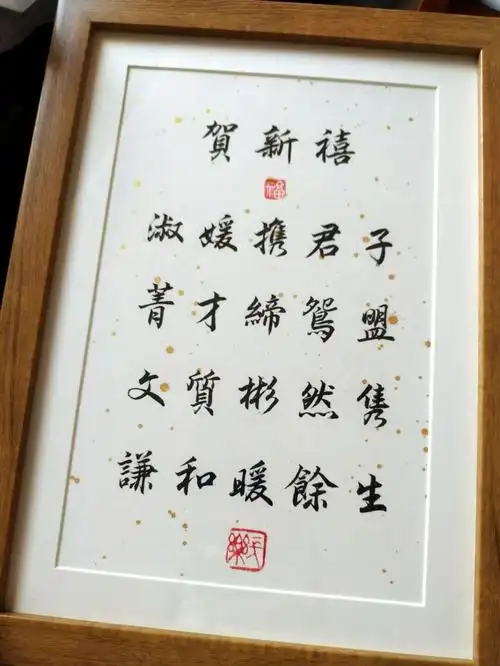 賀新禧
福
淑媛携君子
菁才締鴛盟
文質彬然隽
謙和暖餘生